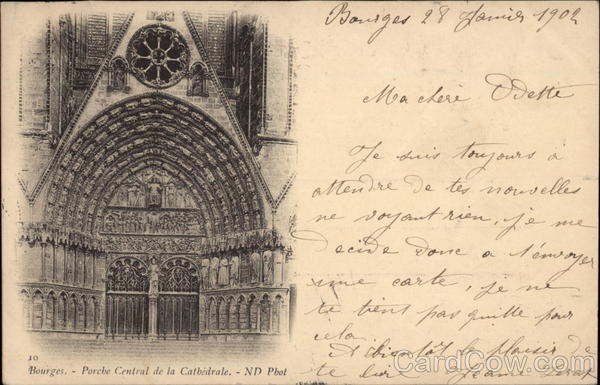 Bourges 28 Janvier 1902
Ma chère Odette
Je suis toujours à
attendre de tes nouvelles
ne voyant rien, je me
decide donc a t'envoyer
une carte, je ne
te tient pas quitte pour
cela.
A bientôt le plaisir de
te lire Jeanne
10
Bourges. - Porche Central de la Cathédrale. - ND Phot
CardCow.com